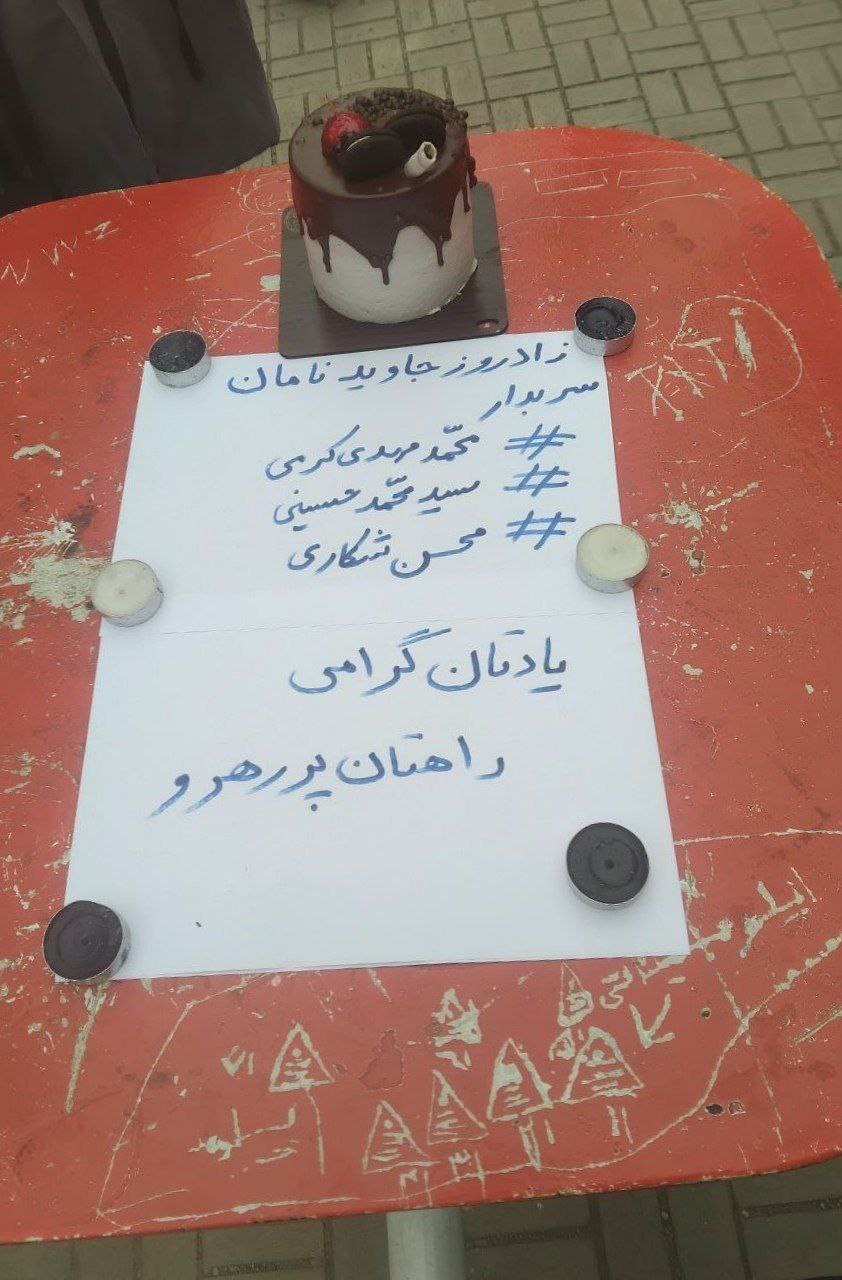 زادروز جاوید نامان
سربدار
# محمّد مهدی کرمی
# سید محمّد حسینی
# محسن شکاری
یادتان گرامی
راهتان پر رهرو